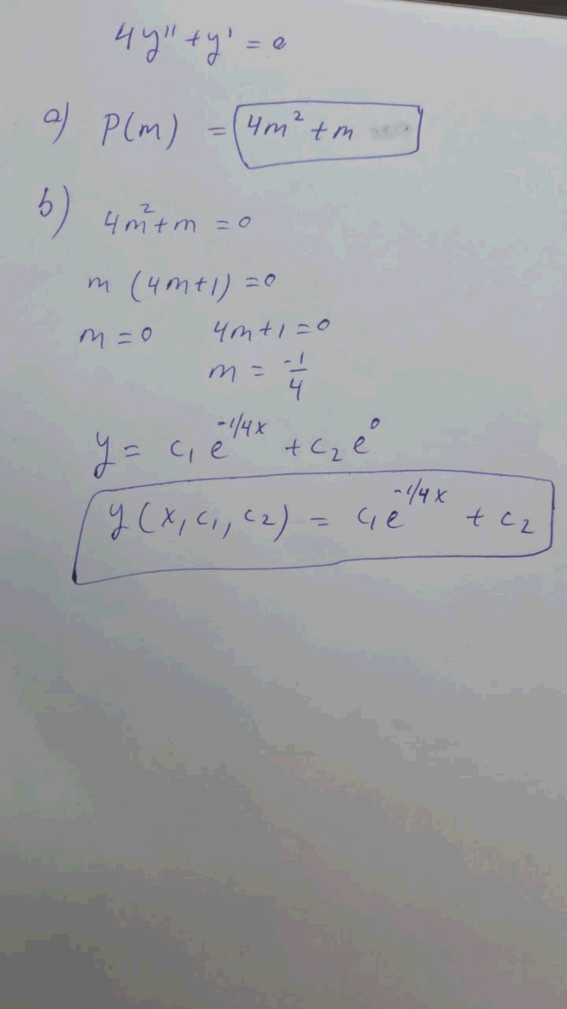 4y'' + y' = 0
a) P(m) = 4m² + m
b) 4m² + m = 0
m (4m+1) = 0
m = 0 4m+1 = 0
m = -1/4
y = c₁ e^(-1/4x) + c₂ e⁰
y (x, c₁, c₂) = c₁e^(-1/4x) + c₂